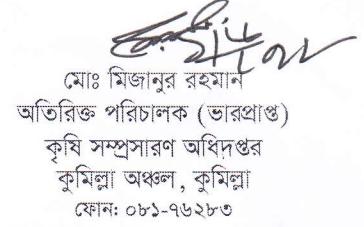 মোঃ মিজানুর রহমান
অতিরিক্ত পরিচালক (ভারপ্রাপ্ত)
কৃষি সম্প্রসারণ অধিদপ্তর
কুমিল্লা অঞ্চল, কুমিল্লা
ফোন: ০৮১-৭৬২৮৩